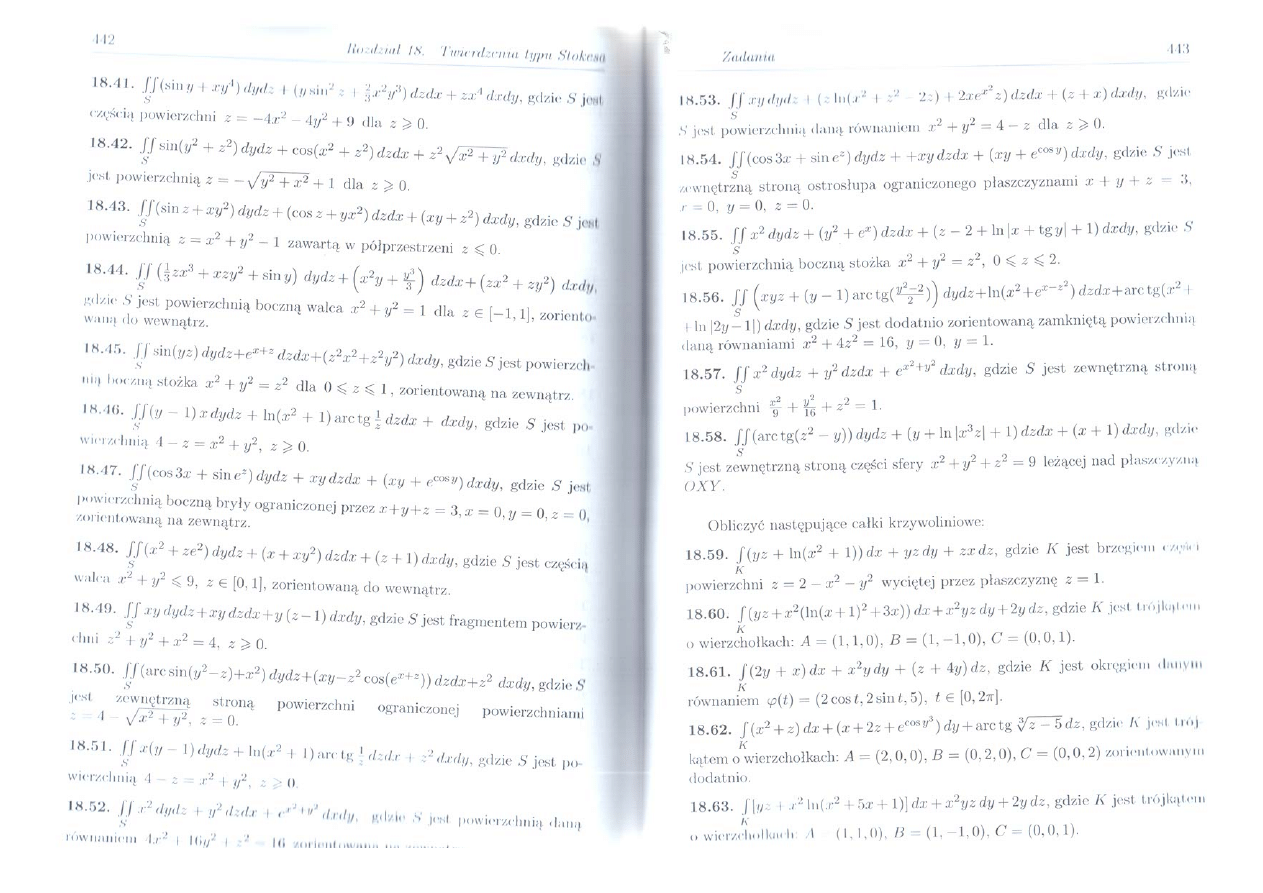 442
Rozdział 18. Twierdzenia typu Stokesa
18.41. ∬(sin y + xy⁴) dydz + (y sin² z + ⅔x²y³) dzdx + zx⁴ dxdy, gdzie S jest
S
częścią powierzchni z = −4x² − 4y² + 9 dla z ⩾ 0.
18.42. ∬ sin(y² + z²) dydz + cos(x² + z²) dzdx + z²√(x² + y²) dxdy, gdzie S
S
jest powierzchnią z = −√(y² + x²) + 1 dla z ⩾ 0.
18.43. ∬(sin z + xy²) dydz + (cos z + yx²) dzdx + (xy + z²) dxdy, gdzie S jest
S
powierzchnią z = x² + y² − 1 zawartą w półprzestrzeni z ⩽ 0.
18.44. ∬ (⅓zx³ + xzy² + sin y) dydz + (x²y + y³/3) dzdx + (zx² + zy²) dxdy,
S
gdzie S jest powierzchnią boczną walca x² + y² = 1 dla z ∈ [−1, 1], zoriento-
waną do wewnątrz.
18.45. ∬ sin(yz) dydz+eˣ⁺ᶻ dzdx+(z²x²+z²y²) dxdy, gdzie S jest powierzch-
S
nią boczną stożka x² + y² = z² dla 0 ⩽ z ⩽ 1, zorientowaną na zewnątrz.
18.46. ∬(y − 1) x dydz + ln(x² + 1) arc tg 1/z dzdx + dxdy, gdzie S jest po-
S
wierzchnią 4 − z = x² + y², z ⩾ 0.
18.47. ∬(cos 3x + sin eᶻ) dydz + xy dzdx + (xy + e^(cos y)) dxdy, gdzie S jest
S
powierzchnią boczną bryły ograniczonej przez x+y+z = 3, x = 0, y = 0, z = 0,
zorientowaną na zewnątrz.
18.48. ∬(x² + ze²) dydz + (x + xy²) dzdx + (z + 1) dxdy, gdzie S jest częścią
S
walca x² + y² ⩽ 9, z ∈ [0, 1], zorientowaną do wewnątrz.
18.49. ∬ xy dydz+xy dzdx+y (z−1) dxdy, gdzie S jest fragmentem powierz-
S
chni z² + y² + x² = 4, z ⩾ 0.
18.50. ∬(arc sin(y²−z)+x²) dydz+(xy−z² cos(eˣ⁺ᶻ)) dzdx+z² dxdy, gdzie S
S
jest zewnętrzną stroną powierzchni ograniczonej powierzchniami
z = 4 − √(x² + y²), z = 0.
18.51. ∬ x(y − 1) dydz + ln(x² + 1) arc tg 1/z dzdx + z² dxdy, gdzie S jest po-
S
wierzchnią 4 − z = x² + y², z ⩾ 0.
18.52. ∬ x² dydz + y² dzdx + e^(x²+y²) dxdy, gdzie S jest powierzchnią daną
S
równaniem 4x² + 16y² + z² = 16
Zadania
443
18.53. ∬ xy dydz + (z ln(x² + z² − 2z) + 2xe^(x²)z) dzdx + (z + x) dxdy, gdzie
S
S jest powierzchnią daną równaniem x² + y² = 4 − z dla z ⩾ 0.
18.54. ∬(cos 3x + sin eᶻ) dydz + +xy dzdx + (xy + e^(cos y)) dxdy, gdzie S jest
S
zewnętrzną stroną ostrosłupa ograniczonego płaszczyznami x + y + z = 3,
x = 0, y = 0, z = 0.
18.55. ∬ x² dydz + (y² + eˣ) dzdx + (z − 2 + ln |x + tg y| + 1) dxdy, gdzie S
S
jest powierzchnią boczną stożka x² + y² = z², 0 ⩽ z ⩽ 2.
18.56. ∬ (xyz + (y − 1) arc tg((y²−2)/2)) dydz+ln(x²+e^(x−z²)) dzdx+arc tg(x² +
S
+ ln |2y − 1|) dxdy, gdzie S jest dodatnio zorientowaną zamkniętą powierzchnią
daną równaniami x² + 4z² = 16, y = 0, y = 1.
18.57. ∬ x² dydz + y² dzdx + e^(x²+y²) dxdy, gdzie S jest zewnętrzną stroną
S
powierzchni x²/9 + y²/16 + z² = 1.
18.58. ∬(arc tg(z² − y)) dydz + (y + ln |x³z| + 1) dzdx + (x + 1) dxdy, gdzie
S
S jest zewnętrzną stroną części sfery x² + y² + z² = 9 leżącej nad płaszczyzną
OXY.
Obliczyć następujące całki krzywoliniowe:
18.59. ∫(yz + ln(x² + 1)) dx + yz dy + zx dz, gdzie K jest brzegiem części
K
powierzchni z = 2 − x² − y² wyciętej przez płaszczyznę z = 1.
18.60. ∫(yz+x²(ln(x+1)²+3x)) dx+x²yz dy+2y dz, gdzie K jest trójkątem
K
o wierzchołkach: A = (1, 1, 0), B = (1, −1, 0), C = (0, 0, 1).
18.61. ∫(2y + x) dx + x²y dy + (z + 4y) dz, gdzie K jest okręgiem danym
K
równaniem φ(t) = (2 cos t, 2 sin t, 5), t ∈ [0, 2π].
18.62. ∫(x²+z) dx+(x+2z+e^(cos y³)) dy+arc tg ∛(z − 5) dz, gdzie K jest trój-
K
kątem o wierzchołkach: A = (2, 0, 0), B = (0, 2, 0), C = (0, 0, 2) zorientowanym
dodatnio.
18.63. ∫[yz + x² ln(x² + 5x + 1)] dx + x²yz dy + 2y dz, gdzie K jest trójkątem
K
o wierzchołkach: A = (1, 1, 0), B = (1, −1, 0), C = (0, 0, 1).